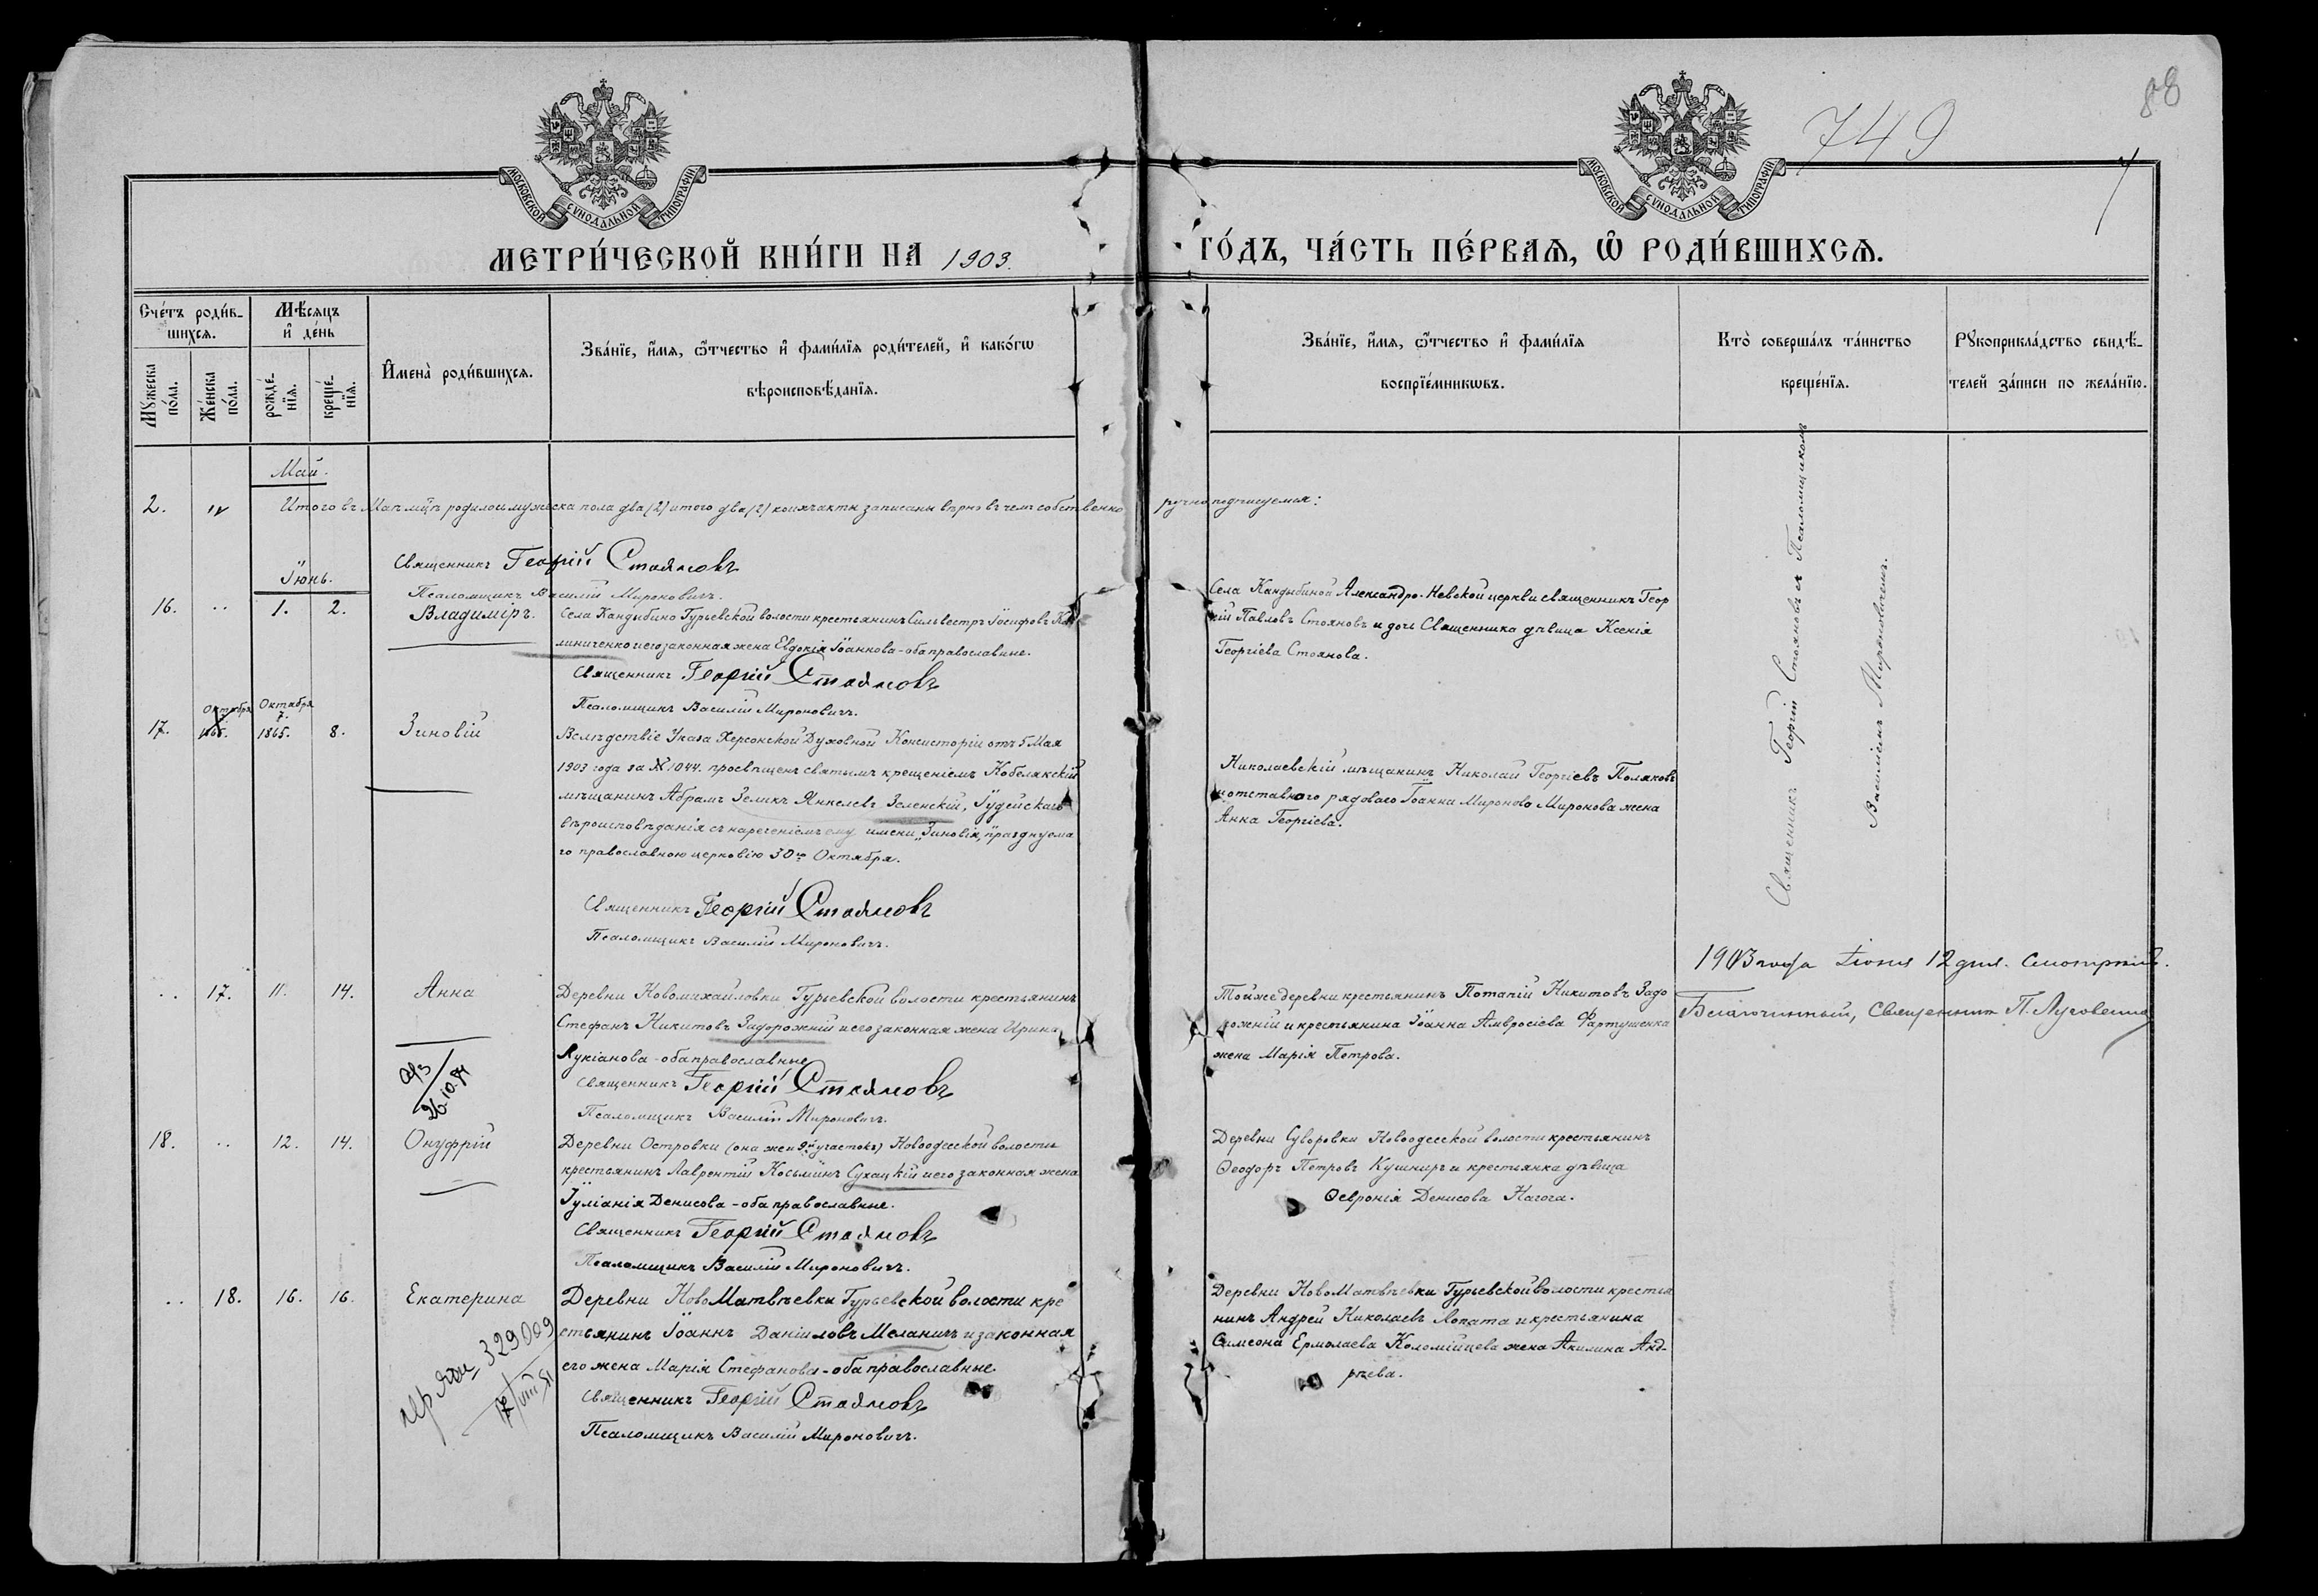 749
88
7
МОСКОВСКОЙ СУНОДАЛЬНОЙ ТИПОГРАФІИ
МОСКОВСКОЙ СУНОДАЛЬНОЙ ТИПОГРАФІИ
МЕТРИ́ЧЕСКОЙ КНИ́ГИ НА 1903.
ГО́ДЪ, ЧА́СТЬ ПЕ́РВАѦ, Ѡ РОДИ́ВШИХСѦ.
Сче́тъ роди́в-
шихсѧ.
Мꙋ́жеска по́ла.
Же́нска по́ла.
Мѣ́сѧцъ
и де́нь
рожде́-нїѧ.
креще́-нїѧ.
Имена̀ роди́вшихсѧ.
Зва́нїе, и́мѧ, ѻ́тчество и фами́лїѧ роди́телей, и како́гѡ
вѣроисповѣ́данїѧ.
Зва́нїе, и́мѧ, ѻ́тчество и фами́лїѧ
воспрїе́мникѡвъ.
Кто̀ соверша́лъ та́инство
креще́нїѧ.
Рꙋкоприкла́дство свидѣ́-
телей за́писи по жела́нїю.
Май.
2. " Итого въ Маѣ мцѣ родилось мужеска пола два (2) итого два (2) коихъ акты записаны вѣрно въ чемъ собственно ручно подписуемся:
Священникъ Георгій Стояновъ
Псаломщикъ Василій Мироновичъ.
Іюнь.
16. .. 1. 2. Владиміръ.
Села Кандыбино Гурьевской волости крестьянинъ Сильвестръ Іосифовъ Ка
линиченко и его законная жена Евдокія Іоаннова - оба православные.
Священникъ Георгій Стояновъ
Псаломщикъ Василій Мироновичъ.
Села Кандыбиной Александро-Невской церкви священникъ Геор
гій Павловъ Стояновъ и дочь Священника дѣвица Ксенія
Георгіева Стоянова.
Священникъ Георгій Стояновъ съ Псаломщикомъ
Василіемъ Мироновичемъ.
17. Октября 7. 1865. 8. Зиновій
Вслѣдствіе Указа Херсонской Духовной Консисторіи отъ 5 Мая
1903 года за № 1044. просвѣщенъ святымъ крещеніемъ Кобелякскій
мѣщанинъ Абрамъ Зеликъ Янкелевъ Зеленскій, Іудейскаго
вѣроисповѣданія съ нареченіемъ ему имени „Зиновія," празднуема
го православною церковію 30го Октября.
Священникъ Георгій Стояновъ
Псаломщикъ Василій Мироновичъ.
Николаевскій мѣщанинъ Николай Георгіевъ Поляковъ
и отставного рядового Іоанна Миронова Миронова жена
Анна Георгіева.
1903 года Іюня 12 дня. Смотрѣлъ.
Благочинный, Священник П. Луговенко
.. 17. 11. 14. Анна
Деревни Новомихайловки Гурьевской волости крестьянинъ
Стефанъ Никитовъ Задорожній и его законная жена Ирина
Лукіанова - оба православные
Священникъ Георгій Стояновъ
Псаломщикъ Василій Мироновичъ.
Той же деревни крестьянинъ Потапій Никитовъ Задо
рожній и крестьянина Іоанна Амвросіева Фартушенка
жена Марія Петрова.
26.10.84
18. .. 12. 14. Онуфрій
Деревни Островки (она же и 9й участокъ) Новоодесской волости
крестьянинъ Лаврентій Косьминъ Сухацкій и его законная жена
Іуліанія Денисова - оба православные.
Священникъ Георгій Стояновъ
Псаломщикъ Василій Мироновичъ.
Деревни Суворовки Новоодесской волости крестьянинъ
Ѳеодоръ Петровъ Кушниръ и крестьянка дѣвица
Ѳевронія Денисова Нагога.
.. 18. 16. 16. Екатерина
Деревни НовоМатвѣевки Гурьевской волости кре
стьянинъ Іоаннъ Даніиловъ Меланичъ и законная
его жена Марія Стефанова - оба православные.
Священникъ Георгій Стояновъ
Псаломщикъ Василій Мироновичъ.
Деревни НовоМатвѣевки Гурьевской волости крестья
нинъ Андрей Николаевъ Лопата и крестьянина
Симеона Ермолаева Коломійцева жена Акилина Анд-
рѣева.
329009